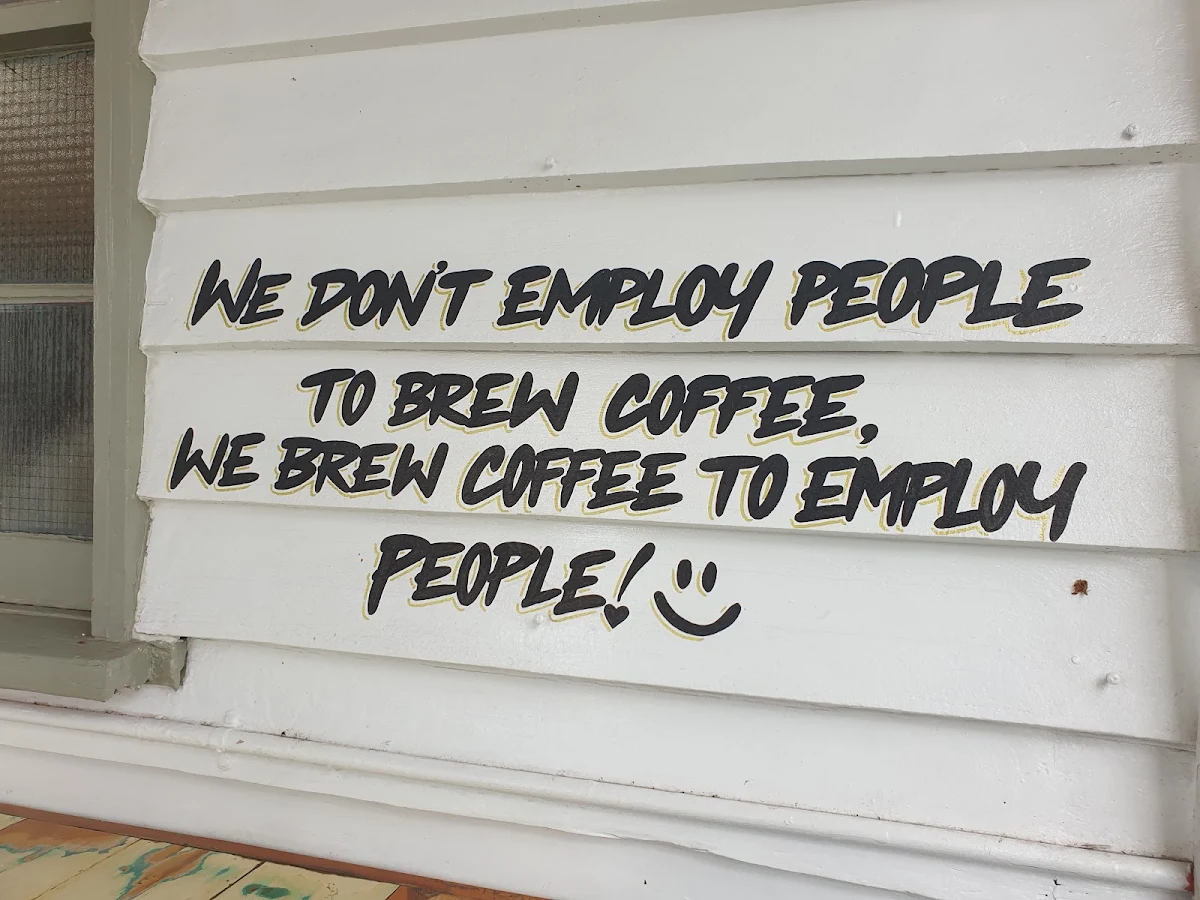 WE DON'T EMPLOY PEOPLE
TO BREW COFFEE,
WE BREW COFFEE TO EMPLOY
PEOPLE!